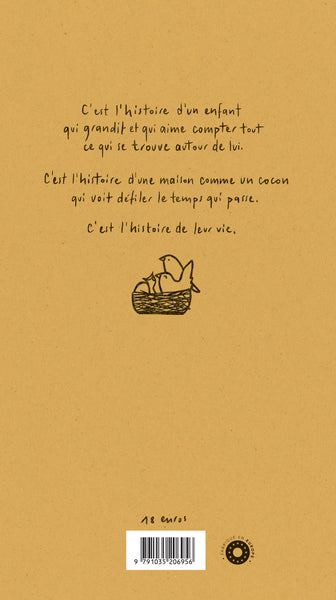 C'est l'histoire d'un enfant
qui grandit et qui aime compter tout
ce qui se trouve autour de lui.
C'est l'histoire d'une maison comme un cocon
qui voit défiler le temps qui passe.
C'est l'histoire de leur vie.
18 euros
FABRIQUÉ EN EUROPE
9 791035 206956